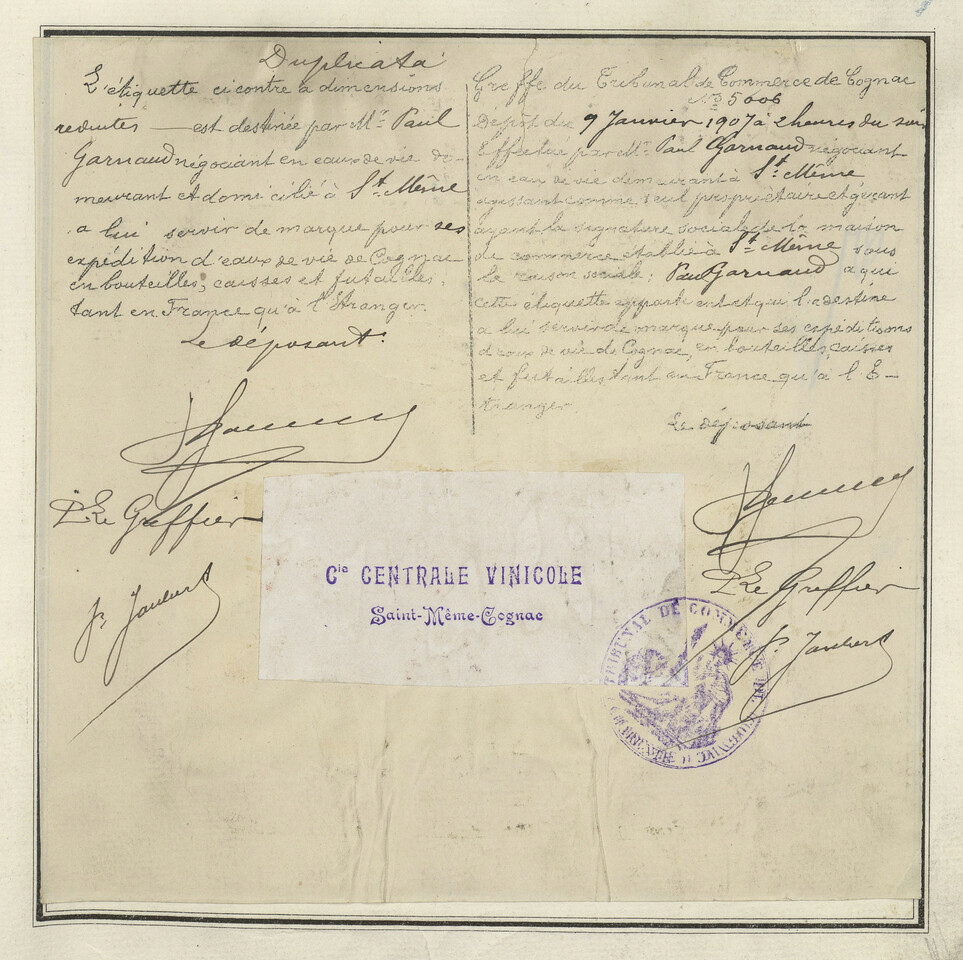 Duplicata
L'étiquette ci contre à dimensions
reduites — est destinée par Mr. Paul
Garnaud négociant en eaux de vie de-
meurant et domicilié à St. Même
a lui servir de marque pour ses
expédition d'eaux de vie de Cognac
en bouteilles, caisses et futailles,
tant en France qu'à l'Etranger.
Le déposant.
Pr Le Greffier
Greffe du Tribunal de Commerce de Cognac
No 5006
Dépôt du 9 Janvier 1907 à 2 heures du soir
Effectué par Mr. Paul Garnaud négociant
en eau de vie demeurant à St. Même
agissant comme seul propriétaire et gérant
ayant la signature sociale de la maison
de commerce établie à St. Même sous
la raison sociale: Paul Garnaud a qui
cette étiquette appartient et qu'il destine
a lui servir de marque pour ses expéditions
d'eaux de vie de Cognac, en bouteilles, caisses
et futailles tant en France qu'à l'E-
tranger.
Le déposant
Pr Le Greffier
Cie CENTRALE VINICOLE
Saint-Même-Cognac
TRIBUNAL DE COMMERCE